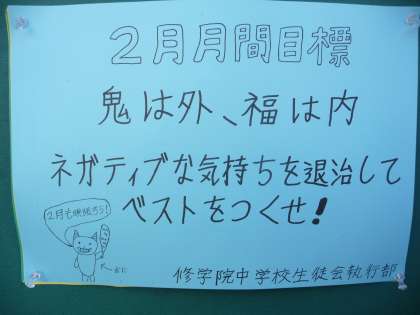 ２月月間目標
鬼は外、福は内
ネガティブな気持ちを退治して
ベストをつくせ!
2月も頑張ろう!
修学院中学校生徒会執行部